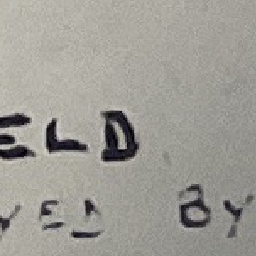 ELD
YED BY